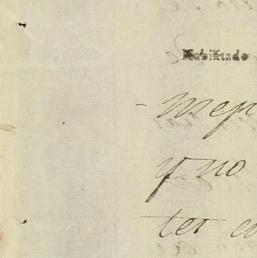 Habilitado
- mep
y no
tet c